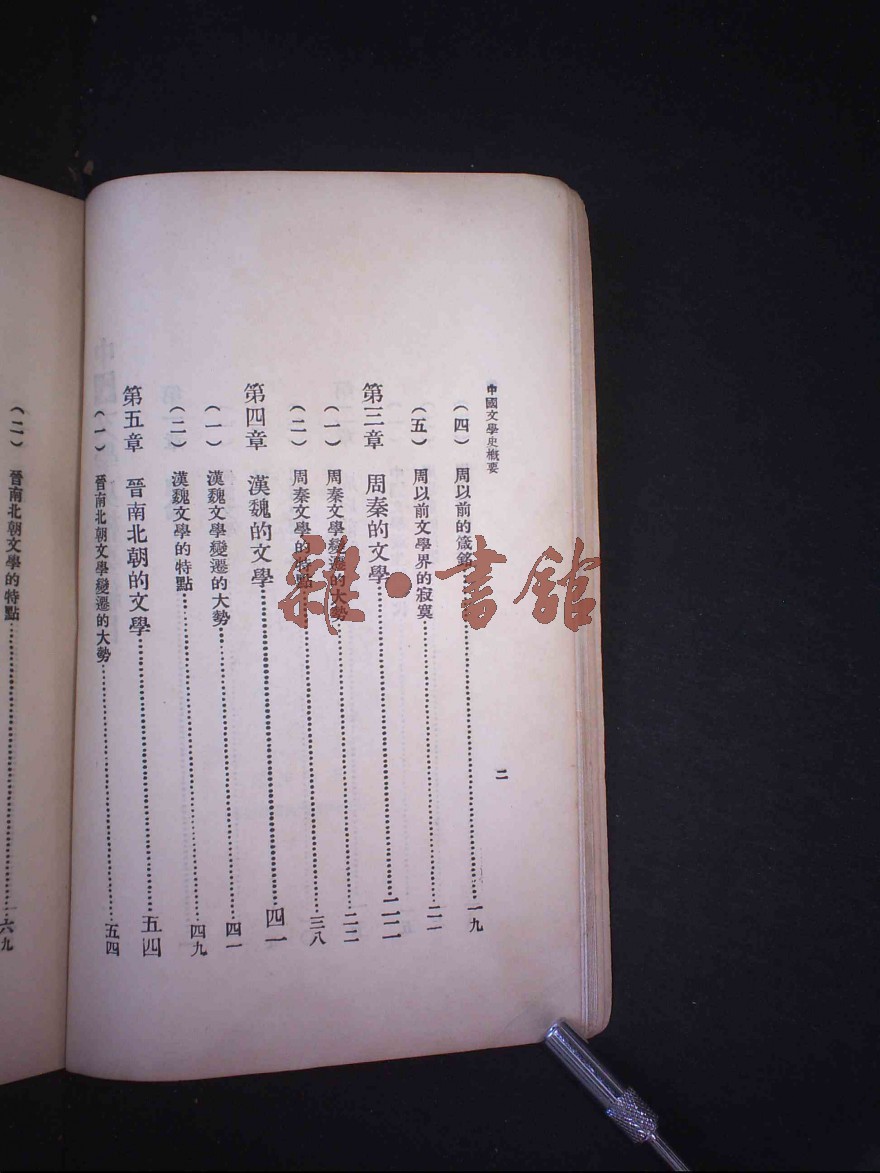 中國文學史概要
二
（四）　周以前的箴銘……一九
（五）　周以前文學界的寂寞……二一
第三章　周秦的文學……二二
（一）　周秦文學變遷的大勢……二二
（二）　周秦文學的特點……三八
第四章　漢魏的文學……四一
（一）　漢魏文學變遷的大勢……四一
（二）　漢魏文學的特點……四九
第五章　晉南北朝的文學……五四
（一）　晉南北朝文學變遷的大勢……五四
（二）　晉南北朝文學的特點……六九
雜·書館